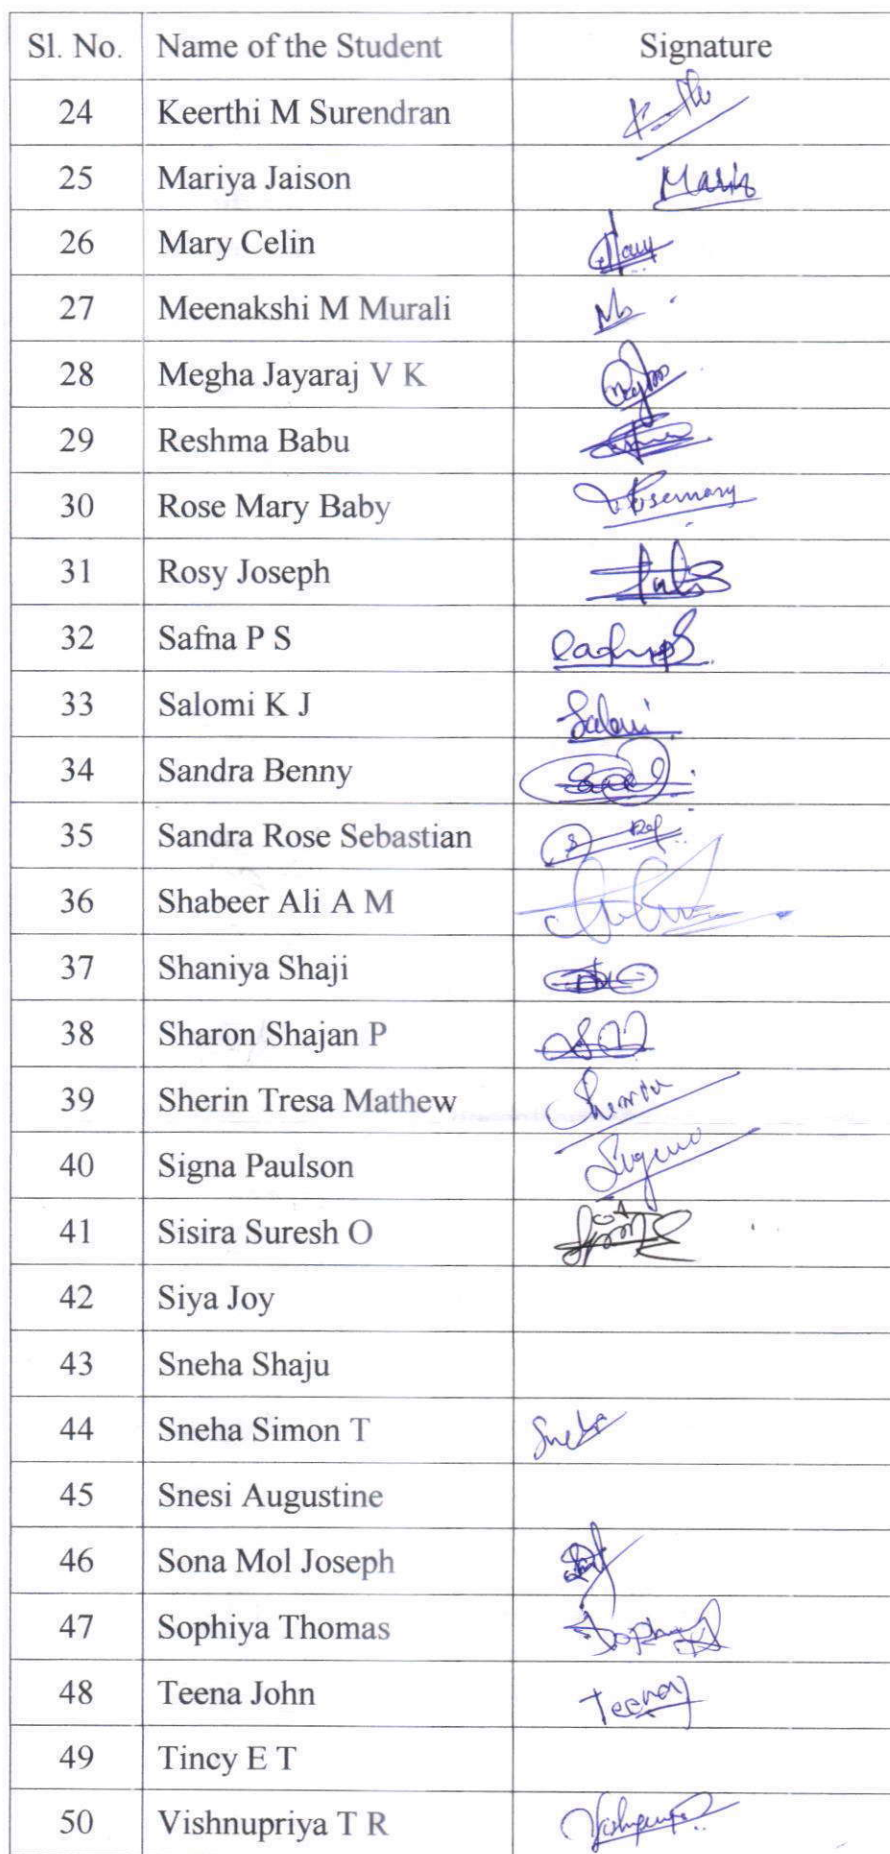 Sl. No. Name of the Student Signature
24 Keerthi M Surendran
25 Mariya Jaison Maria
26 Mary Celin Mary
27 Meenakshi M Murali
28 Megha Jayaraj V K
29 Reshma Babu
30 Rose Mary Baby Rosemary
31 Rosy Joseph
32 Safna P S
33 Salomi K J Salomi
34 Sandra Benny
35 Sandra Rose Sebastian
36 Shabeer Ali A M
37 Shaniya Shaji
38 Sharon Shajan P
39 Sherin Tresa Mathew
40 Signa Paulson
41 Sisira Suresh O
42 Siya Joy
43 Sneha Shaju
44 Sneha Simon T Sneha
45 Snesi Augustine
46 Sona Mol Joseph
47 Sophiya Thomas
48 Teena John
49 Tincy E T
50 Vishnupriya T R